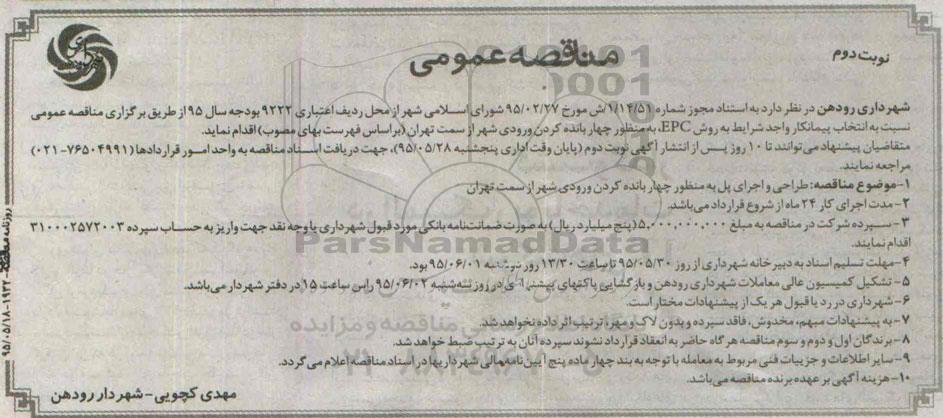 نوبت دوم
مناقصه عمومی
شهرداری رودهن در نظر دارد به استناد مجوز شماره ۱/۱۴/۵۱/ش مورخ ۹۵/۰۲/۲۷ شورای اسلامی شهر از محل ردیف اعتباری ۹۲۲۲ بودجه سال ۹۵ از طریق برگزاری مناقصه عمومی
نسبت به انتخاب پیمانکار واجد شرایط به روش EPC، به منظور چهار بانده کردن ورودی شهر از سمت تهران (براساس فهرست بهای مصوب) اقدام نماید.
متقاضیان پیشنهاد می‌توانند تا ۱۰ روز پس از انتشار آگهی نوبت دوم (پایان وقت اداری پنجشنبه ۹۵/۰۵/۲۸)، جهت دریافت اسناد مناقصه به واحد امور قراردادها (۷۶۵۰۴۹۹۱-۰۲۱)
مراجعه نمایند.
۱-موضوع مناقصه: طراحی و اجرای پل به منظور چهار بانده کردن ورودی شهر از سمت تهران
۲-مدت اجرای کار ۲۴ ماه از شروع قرارداد می‌باشد.
۳-سپرده شرکت در مناقصه به مبلغ ۵,۰۰۰,۰۰۰,۰۰۰ (پنج میلیارد ریال) به صورت ضمانت‌نامه بانکی مورد قبول شهرداری یا وجه نقد جهت واریز به حساب سپرده ۳۱۰۰۰۲۵۷۲۰۰۳
اقدام نمایند.
۴-مهلت تسلیم اسناد به دبیرخانه شهرداری از روز ۹۵/۰۵/۳۰ تا ساعت ۱۳/۳۰ روز دوشنبه ۹۵/۰۶/۰۱ بود.
۵-تشکیل کمیسیون عالی معاملات شهرداری رودهن و بازگشایی پاکتهای پیشنهادی در روز سه‌شنبه ۹۵/۰۶/۰۲ راس ساعت ۱۵ در دفتر شهردار می‌باشد.
۶-شهرداری در رد یا قبول هر یک از پیشنهادات مختار است.
۷-به پیشنهادات مبهم، مخدوش، فاقد سپرده و بدون لاک و مهر، ترتیب اثر داده نخواهد شد.
۸-برندگان اول و دوم و سوم مناقصه هرگاه حاضر به انعقاد قرارداد نشوند سپرده آنان به ترتیب ضبط خواهد شد.
۹-سایر اطلاعات و جزییات فنی مربوط به معامله با توجه به بند چهار ماده پنج آیین‌نامه مالی شهرداریها در اسناد مناقصه اعلام می‌گردد.
۱۰-هزینه آگهی بر عهده برنده مناقصه می‌باشد.
مهدی کچویی-شهردار رودهن
روزنامه مناقصه-۱۹۳۲-۹۵/۰۵/۱۸
ParsNamadData